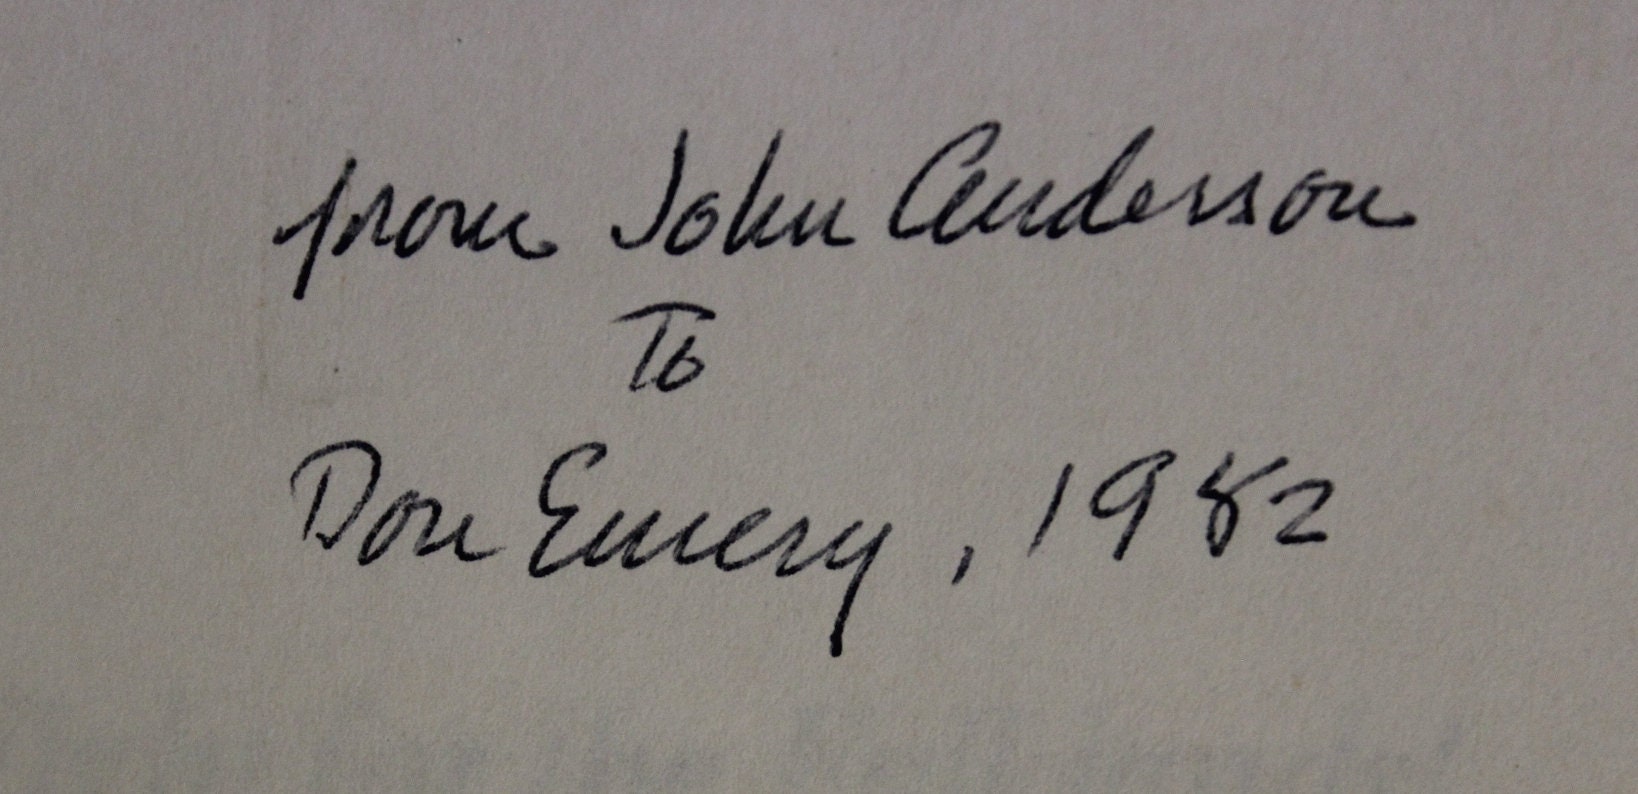 from John Anderson
To
Don Emery, 1982